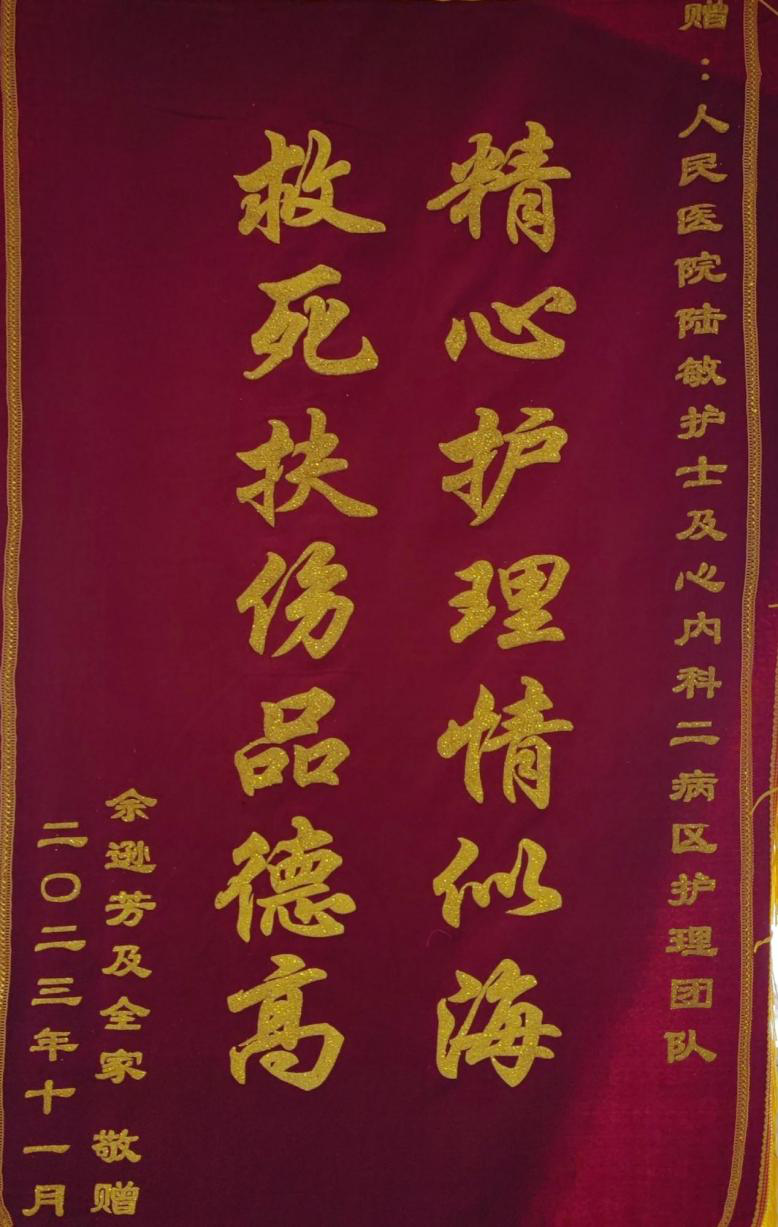 赠：人民医院陆敏护士及心内科二病区护理团队
精心护理情似海
救死扶伤品德高
余逊芳及全家 敬赠
二〇二三年十一月